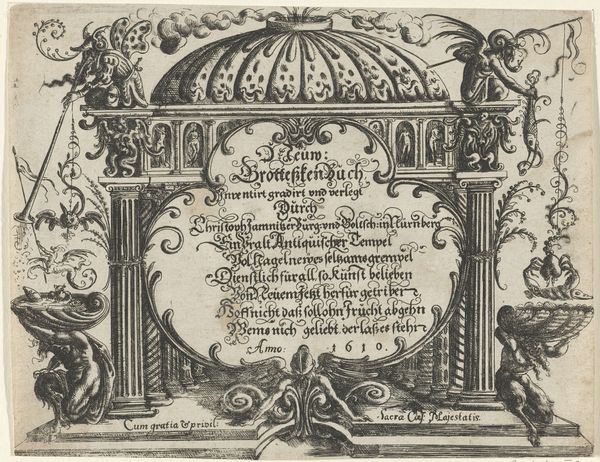 Neuw:
Grotteßken Buch
Inventirt gradirt vnd verlegt
Durch
Christoph Jamnitzer Burg: vnd Goltsch: in Nürnberg
Ein Vralt Antiquischer Tempel
Vol Nagelnewes seltzams grempel
Dienstlich für all, so Kunst belieben
Von Neuem Jetzt herfür getriben
Hoff nicht daß soll ohn frücht abgehn
Wems nich geliebt der laß es stehn
Anno: 1610.
Cum gratia & privil: Sacræ Cæs Majestatis.